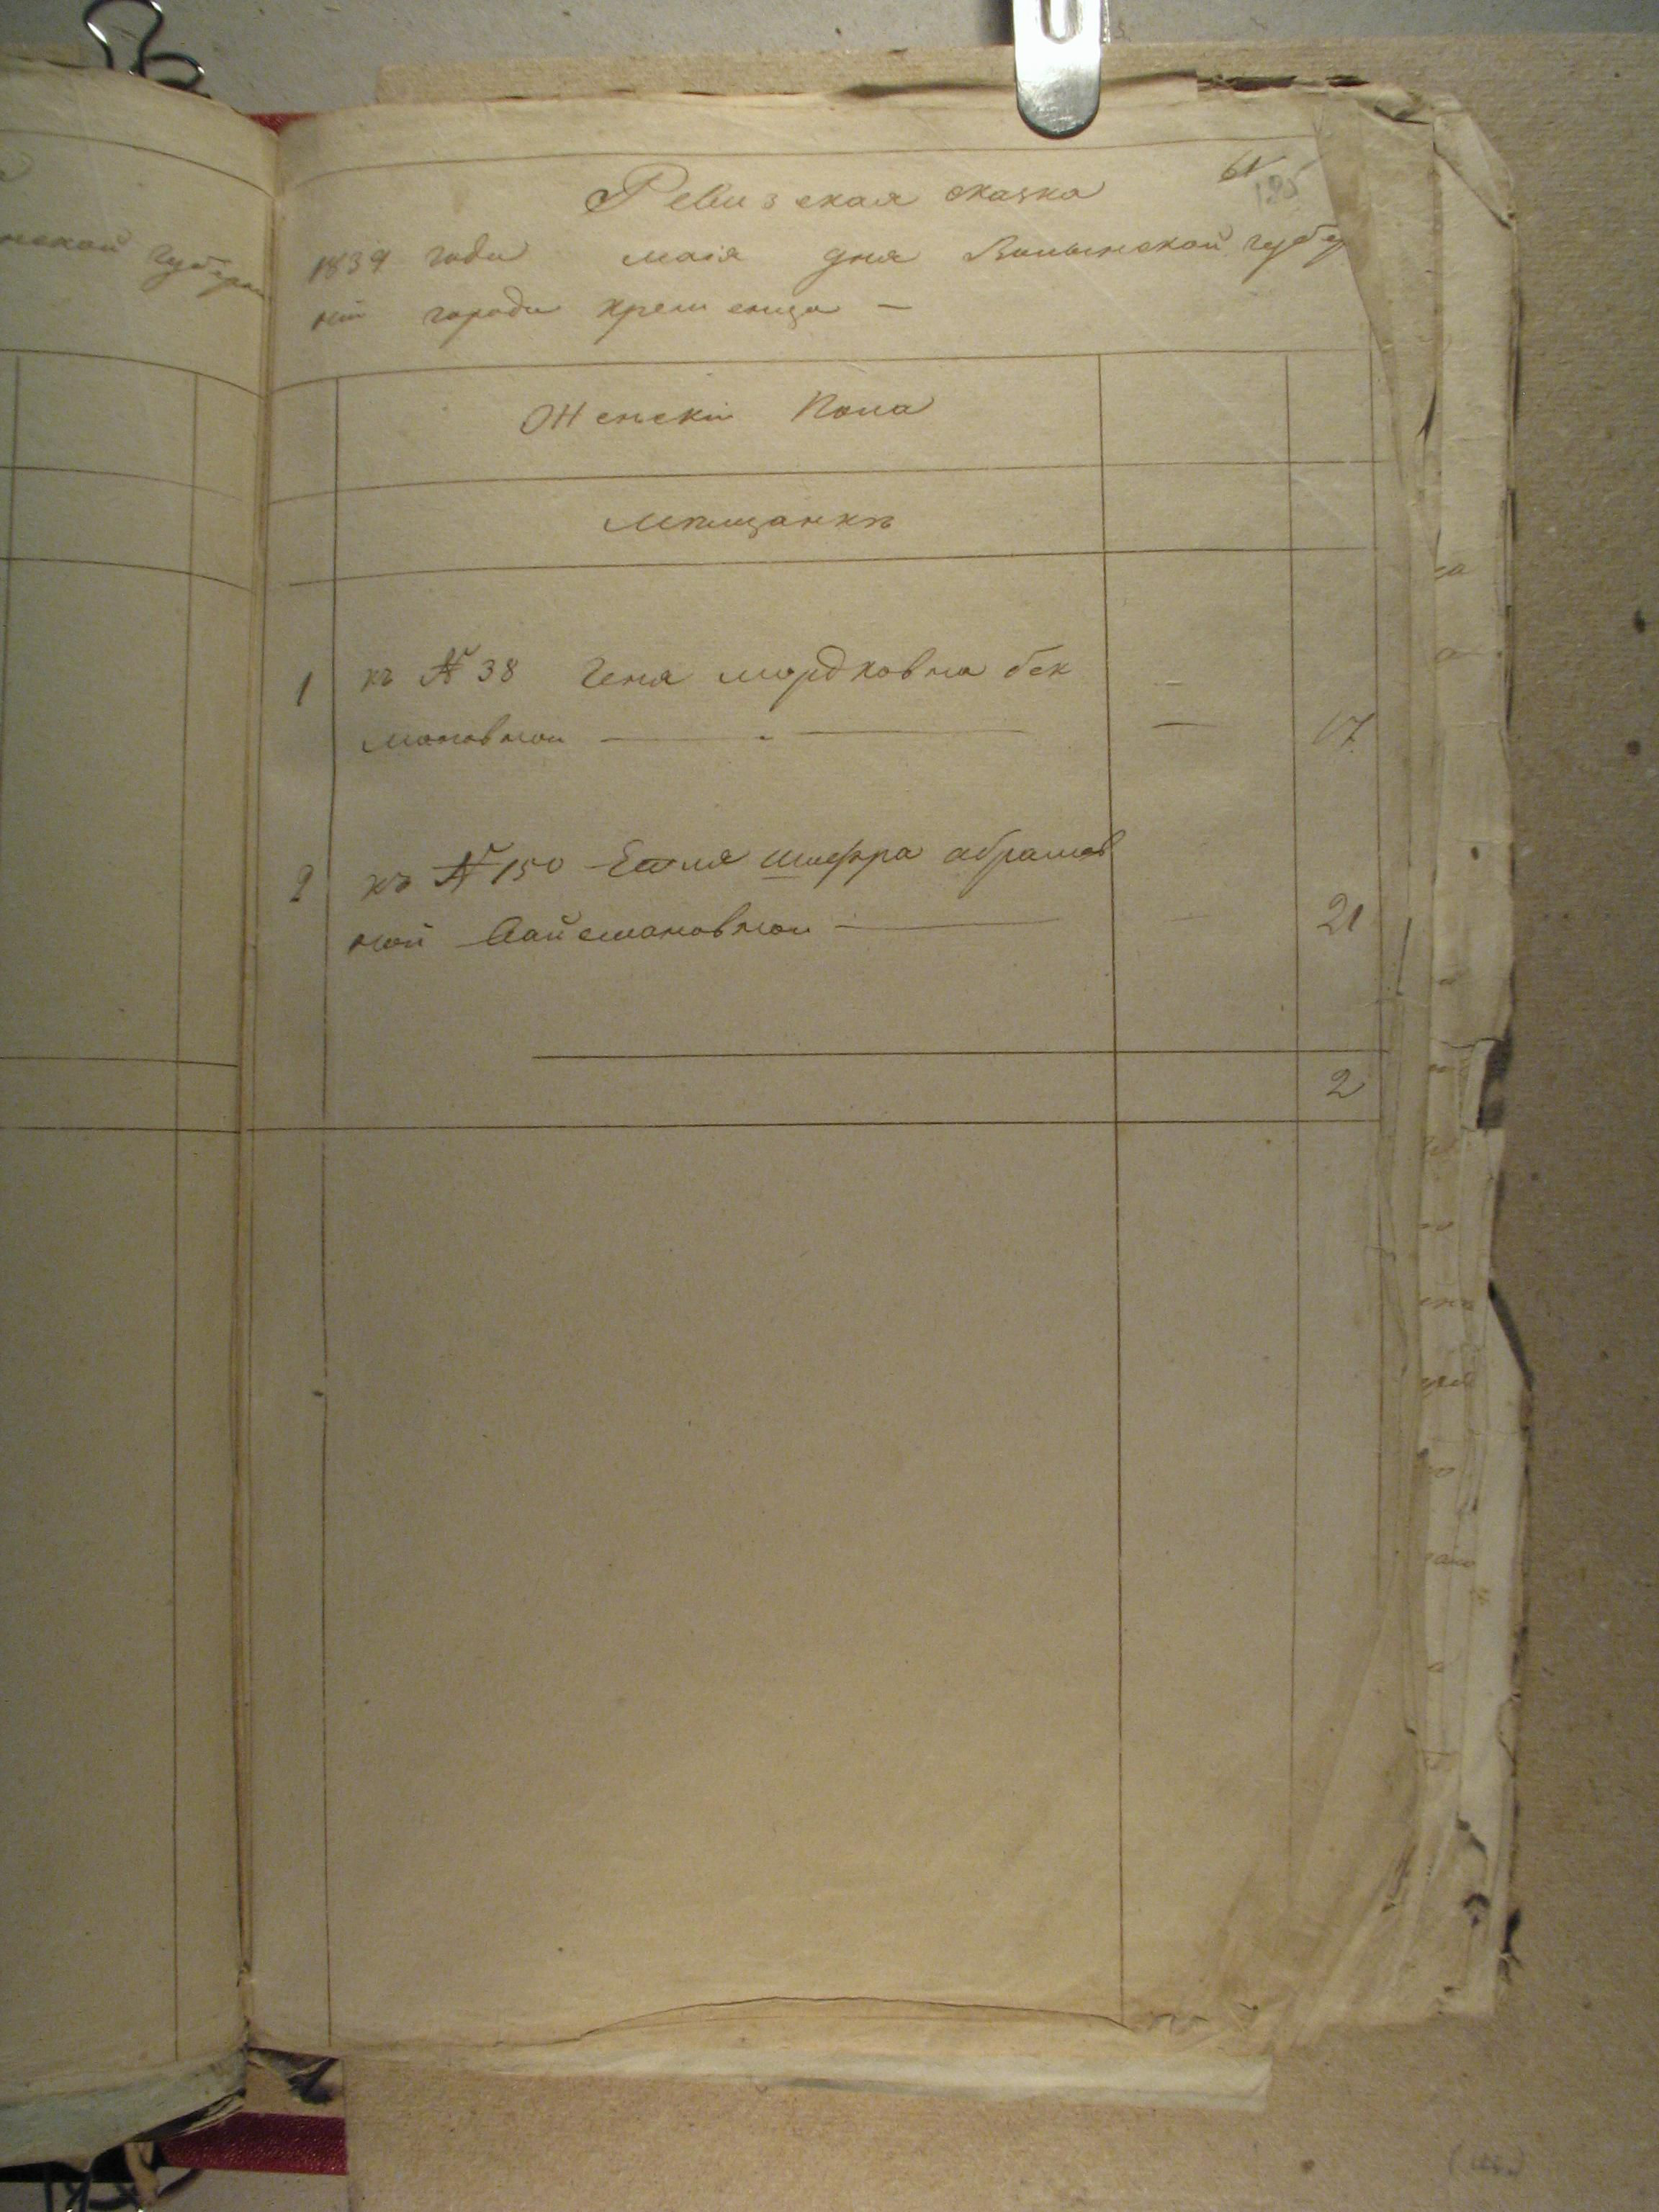 Ревизская сказка
61
195
1839 года маія дня Волынской губер
ніи города кременца —
Женски Пола
Мещанкъ
1 къ № 38 Геня мордковна бек
мановною — 17
2 къ № 150 шифра абрамов
ной Вайсмановною — 21
2
нской губерн